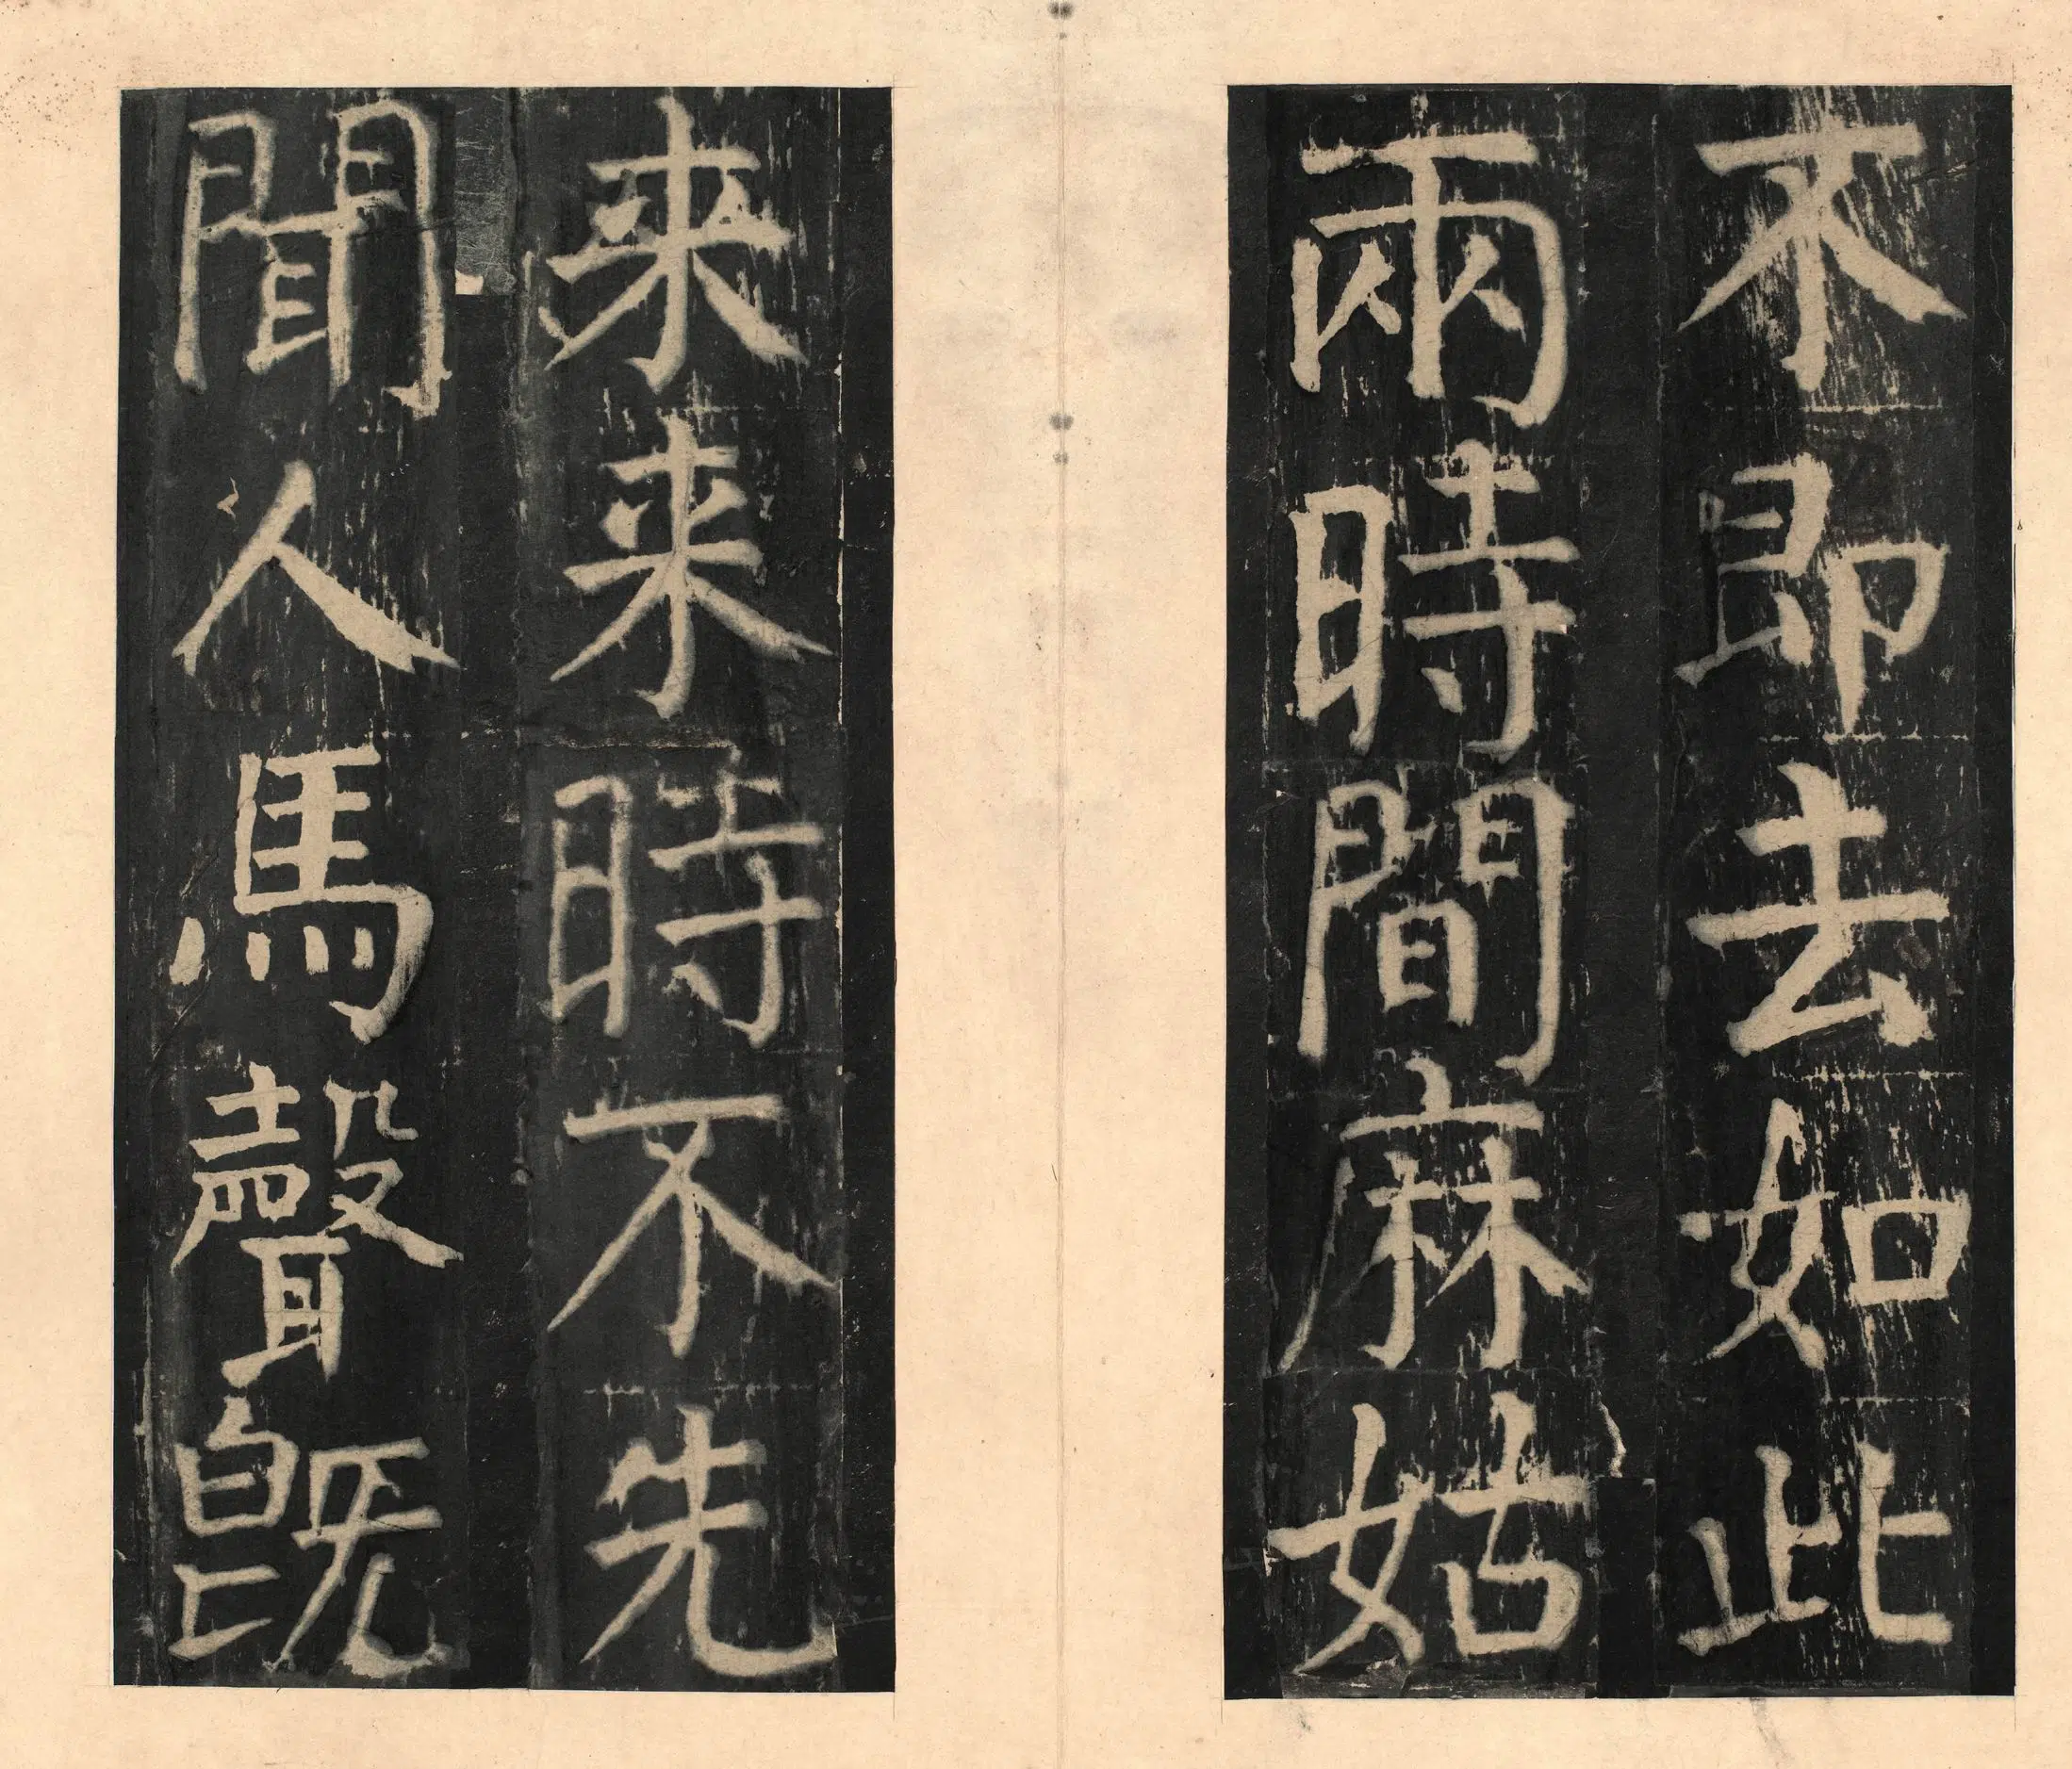 不即去如此
兩時間麻姑
来来時不先
聞人馬聲既